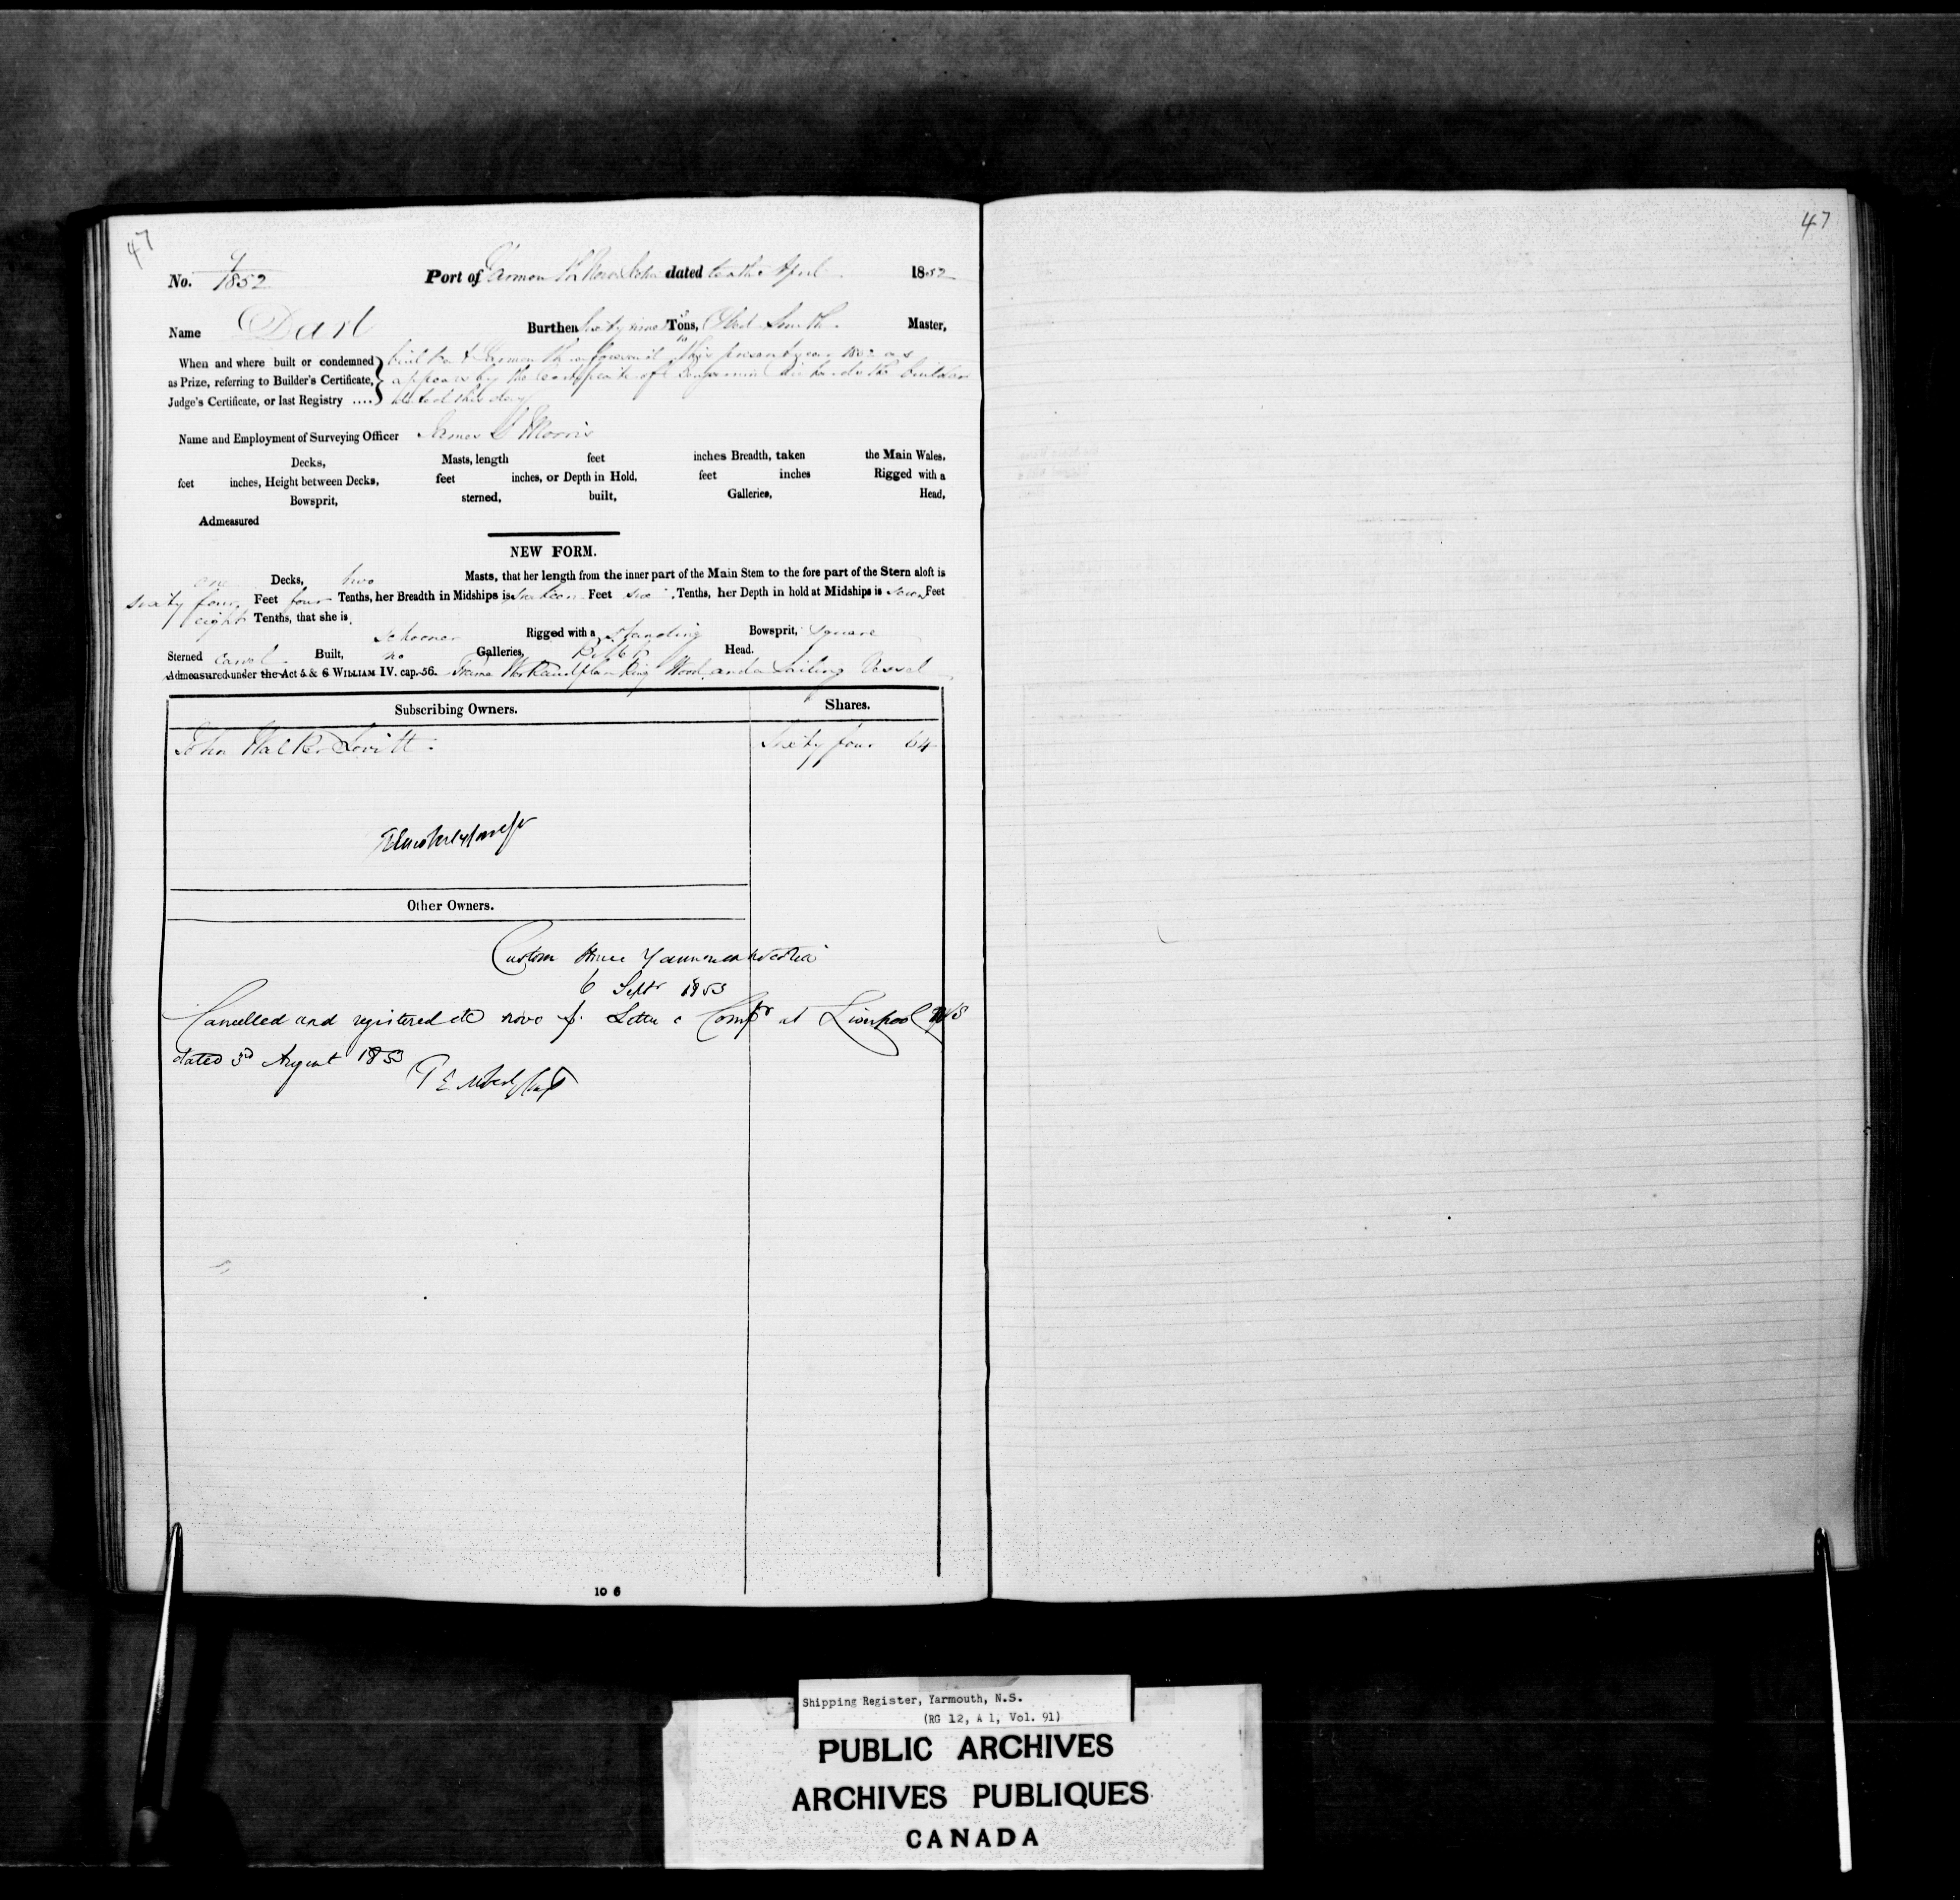 47
47
No. 9/1852 Port of Yarmouth Nova Scotia dated tenth April 1852
Name Dart Burthen sixty nine Tons, Obed Smith Master,
When and where built or condemned as Prize, referring to Builder's Certificate, Judge's Certificate, or last Registry ....
built at Yarmouth aforesaid this present year 1852 as
appears by the Certificate of Benjamin Richards the builder
dated this day
Name and Employment of Surveying Officer James G Morris
Decks, Masts, length feet inches Breadth, taken the Main Wales,
feet inches, Height between Decks, feet inches, or Depth in Hold, feet inches Rigged with a
Bowsprit, sterned, built, Galleries, Head,
Admeasured
NEW FORM.
one Decks, two Masts, that her length from the inner part of the Main Stem to the fore part of the Stern aloft is
sixty four Feet four Tenths, her Breadth in Midships is Feet six Tenths, her Depth in hold at Midships is seven Feet
eight Tenths, that she is
schooner Rigged with a standing Bowsprit, square
Sterned carvel Built, no Galleries, Head.
Admeasured under the Act 5 & 6 WILLIAM IV. cap. 56. Frame Work and planking Wood and a Sailing Vessel
Subscribing Owners. Shares.
John Walker Lovitt Sixty four 64
Other Owners.
Custom House Yarmouth Nova Scotia
6 Septr 1853
Cancelled and registered de novo p. Letter Compr at Liverpool N/S
dated 3rd August 1853
10 6
Shipping Register, Yarmouth, N.S.
(RG 12, A 1, Vol. 91)
PUBLIC ARCHIVES
ARCHIVES PUBLIQUES
CANADA